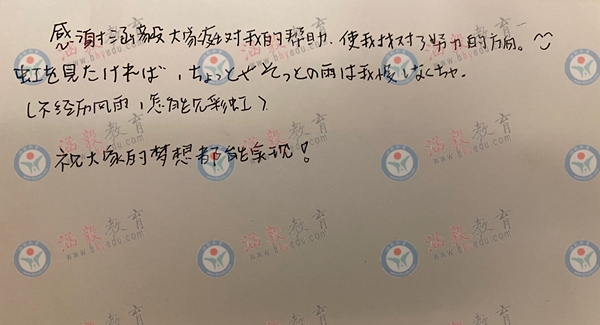 感谢涵毅大家庭对我的帮助，使我找对了努力的方向。
虹を見たければ，ちょっとやそっとの雨は我慢しなくちゃ.
(不经历风雨，怎能见彩虹).
祝大家的梦想都能实现！
涵毅教育
www.bbjedu.com